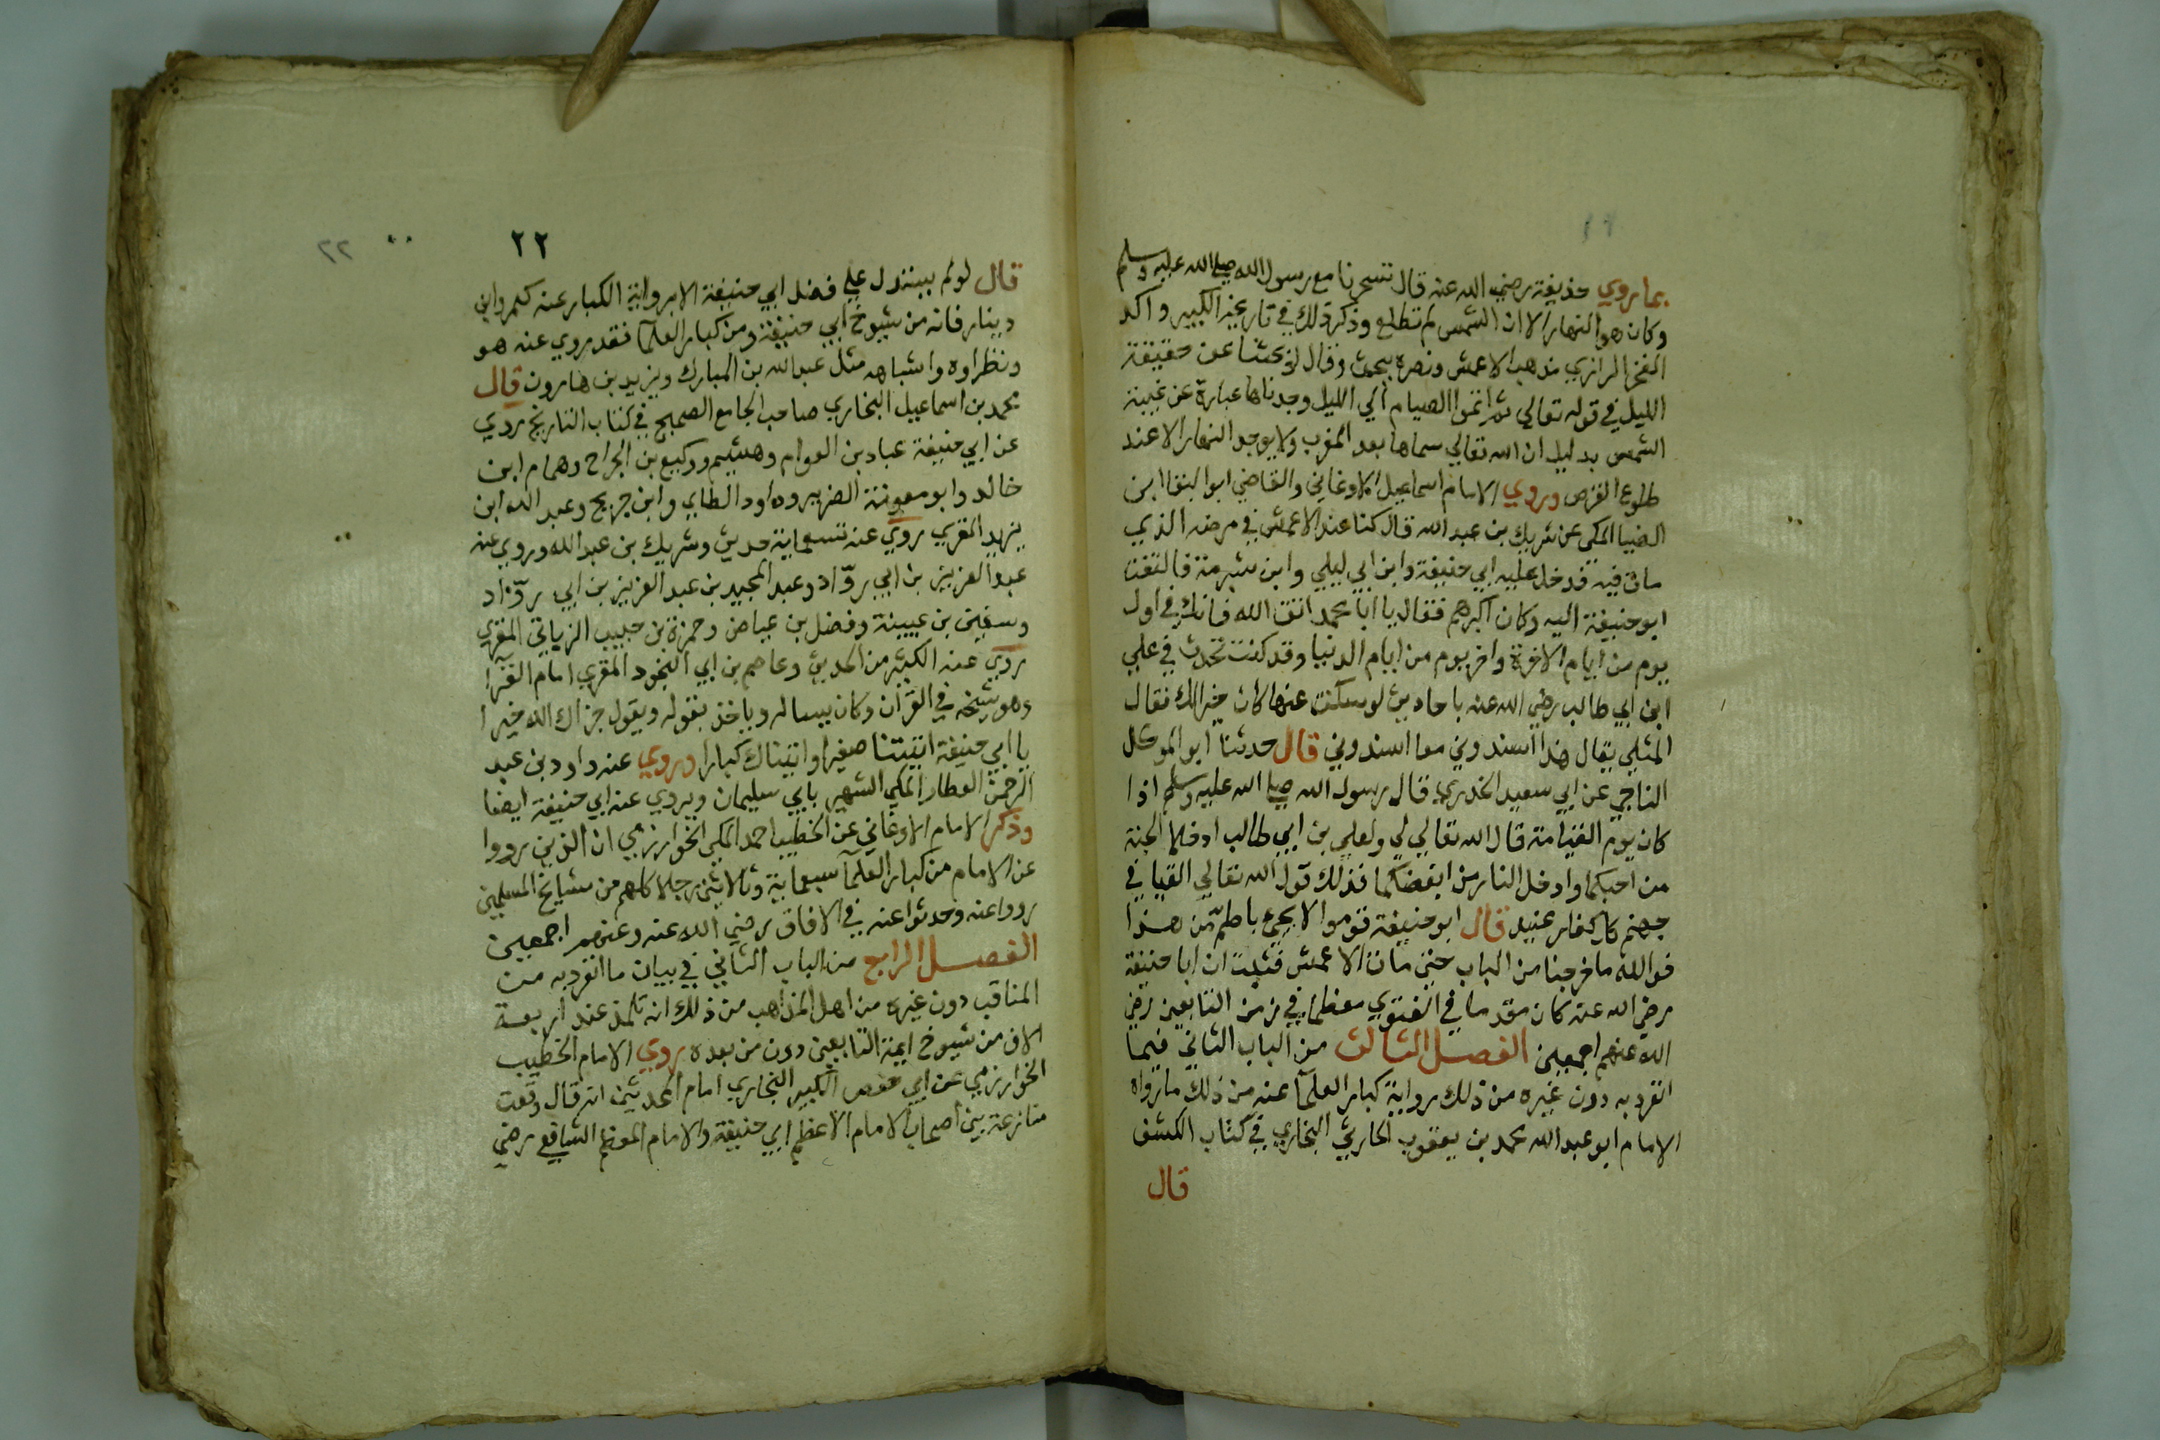 بما روي حذيفة رضي الله عنه قال تسحرنا مع رسول الله صلى الله عليه وسلم
وكان هو النهار الا ان الشمس لم تطلع وذكر ذلك في تاريخيه الكبير واكد
الفخر الرازي مذهب الاعمش ونصره ببحث وقال لو بحثنا عن حقيقة
الليل في قوله تعالى ثم اتموا الصيام الي الليل وجدناها عبارة عن غيبة
الشمس بدليل ان الله تعالي سماها بعد المغرب ولا يوجد النهار الا عند
طلوع القرص وروي الامام اسماعيل الاوغاني والقاضي ابو البقا ابن
الضيا المكي عن شريك بن عبد الله قال كنا عند الاعمش في مرضه الذي
مات فيه فدخل عليه ابي حنيفة وابن ابي ليلي وابن شبرمة فالتفت
ابو حنيفة اليه وكان اكبرهم فقال يا ابا محمد اتق الله فانك في اول
يوم من ايام الاخرة واخر يوم من ايام الدنيا وقد كنت تحدث في علي
ابن ابي طالب رضي الله عنه باحاديث لو سكت عنها كان خيرا لك فقال
المثلي يقال هذا اسندوني معا اسندوني قال حدثنا ابو المتوكل
الناجي عن ابي سعيد الخدري قال رسول الله صلى الله عليه وسلم اذا
كان يوم القيامة قال الله تعالي لي ولعلي بن ابي طالب ادخلا الجنة
من احبكما وادخلا النار من ابغضكما فذلك قول الله تعالي القيا في
جهنم كل كفار عنيد قال ابو حنيفة قوموا لا يجيء باطم من هذا
فوالله ما خرجنا من الباب حتى مات الاعمش فثبت ان ابا حنيفة
رضي الله عنه كان مقدما في الفتوي معظما في زمن التابعين رضي
الله عنهم اجمعين الفصل الثالث من الباب الثاني فيما
انفرد به دون غيره من ذلك رواية كبار العلمآ عنه من ذلك ما رواه
الامام ابو عبد الله محمد بن يعقوب الحارثي البخاري في كتاب الكشف
قال
٢٢
٢٢
قال لو لم يستدل علي فضل ابي حنيفة الا برواية الكبار عنه كعمرو ابن
دينار فانه من شيوخ ابي حنيفة ومن كبار العلمآ فقد روي عنه هو
ونظراوه واشباهه مثل عبد الله بن المبارك ويزيد بن هارون قال
محمد بن اسماعيل البخاري صاحب الجامع الصحيح في كتاب التاريخ روي
عن ابي حنيفة عباد بن العوام وهشيم ووكيع بن الجراح وهمام ابن
خالد وابو معوية الضرير وداود الطايي وابن جريج وعبد الله ابن
يزيد المقري روي عنه تسعماية حديث وشريك بن عبد الله وروي عنه
عبد العزيز بن ابي روّاد وعبد المجيد بن عبد العزيز بن ابي روّاد
وسفين بن عيينة وفضل بن عياض وحمزة بن حبيب الزياتي المقري
روي عنه الكثير من الحديث وعاصم بن ابي النجود المقري امام القرا
وهو شيخه في القرآن وكان يساله وياخذ بقوله ويقول جزاك الله خيرا
يا ابي حنيفة اتيتنا صغيرا واتيناك كبارا وروي عنه داود بن عبد
الرحمن العطار المكي الشهير بابي سليمان ويروي عنه ابي حنيفة ايضا
وذكر الامام الاوغاني عن الخطيب احمد المكي الخوارزمي ان الذين رووا
عن الامام من كبار العلمآ سبعماية وثلاثين رجلا كلهم من مشايخ المسلمين
رووا عنه وحدثوا عنه في الافاق رضي الله عنه وعنهم اجمعين
الفصل الرابع من الباب الثاني في بيان ما انفرد به من
المناقب دون غيره من اهل المذاهب من ذلك انه تلمذ عند اربعة
الاف من شيوخ ايمة التابعين دون من بعده روي الامام الخطيب
الخوارزمي عن ابي حفص الكبير البخاري امام المحدثين انه قال وقعت
منازعة بين اصحاب الامام الاعظم ابي حنيفة والامام المعظم الشافعي رضي